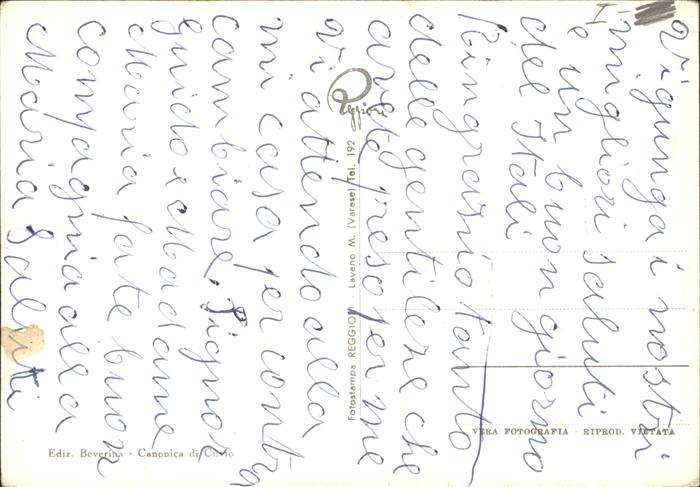 Vi giunga i nostri
migliori saluti
e un buon giorno
del Itali
Ringrazio tanto
delle gentileze che
avete preso per me
vi attendo alla
mi casa per contra
cambiare, Signor
Guido e Madame
Maria fate buon
compagnia alla
Maria Galinti
Reggiori
Fotostampa REGGIORI Laveno M. (Varese) Tel. 192
VERA FOTOGRAFIA - RIPROD. VIETATA
Ediz. Beverina - Canonica di Cuvio